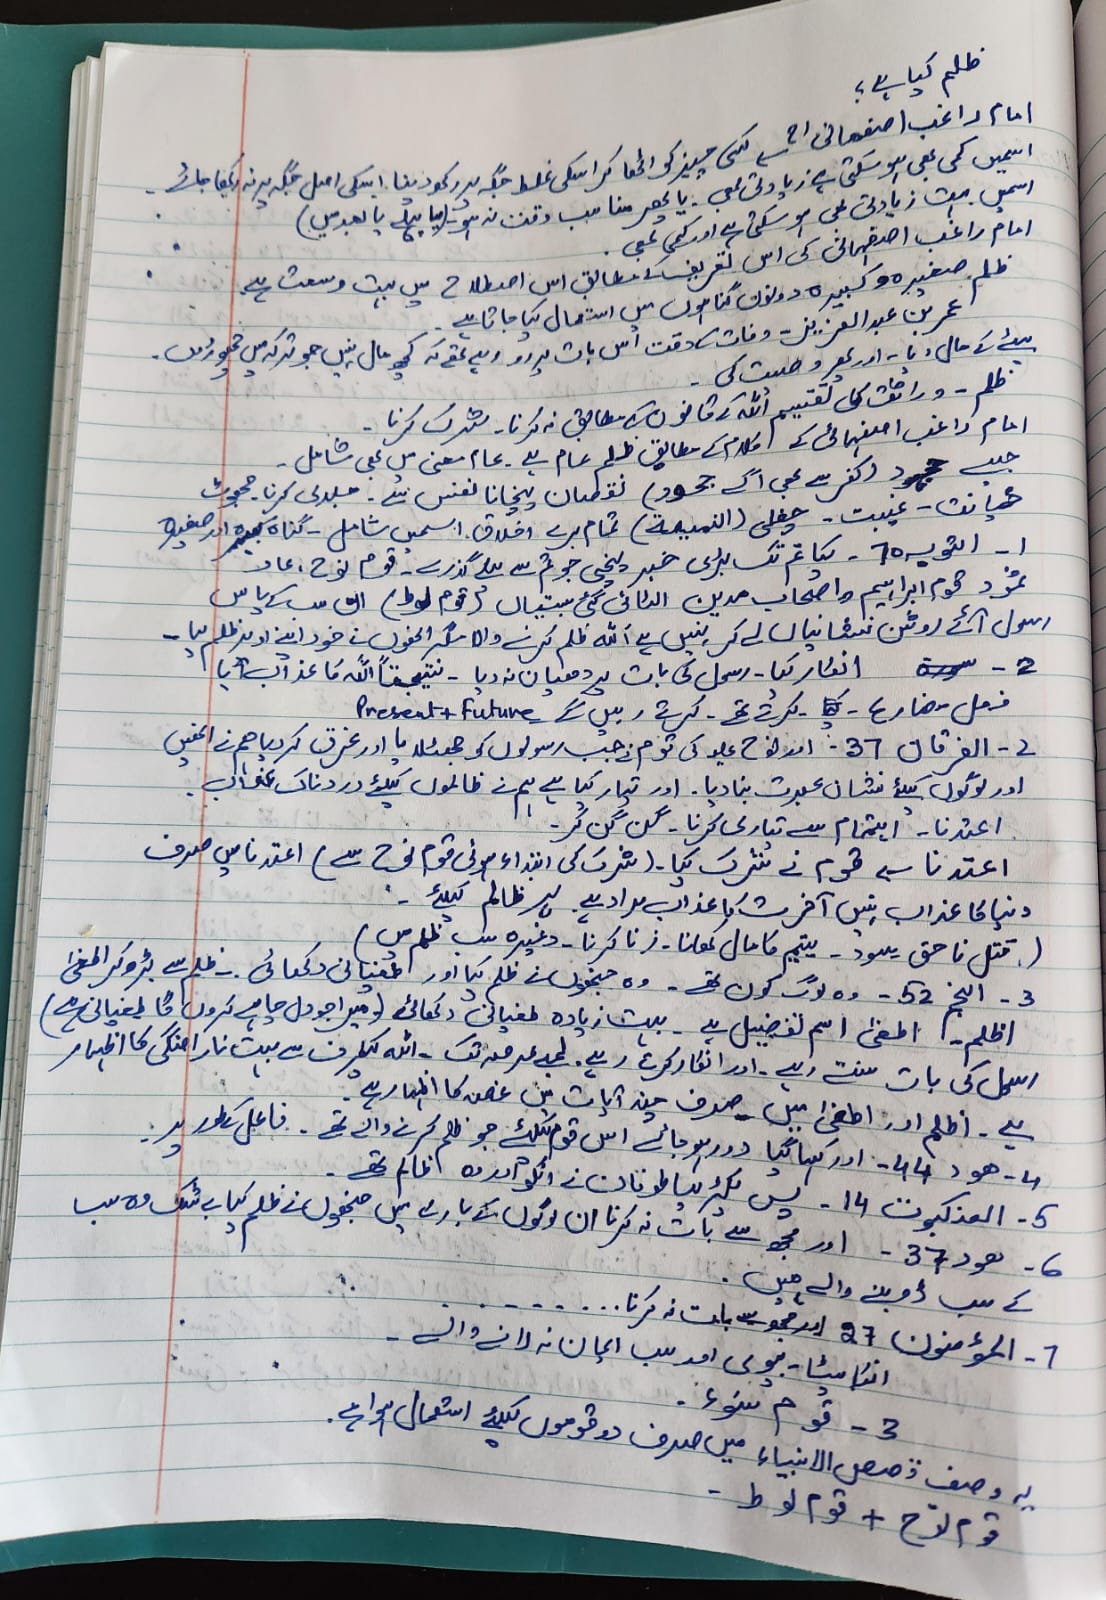 ظلم کیا ہے؟
امام راغب اصفہانی کسی چیز کو اٹھا کر اسکی غلط جگہ پر رکھ دینا۔ اسکی اصل جگہ پر نہ رکھا جائے۔
اسمیں کمی بھی ہو سکتی ہے زیادتی بھی۔ یا پھر مناسب وقت نہ ہو۔ (یا پہلے یا بعد میں)
اسمیں بہت زیادتی بھی ہو سکتی ہے اور کمی بھی۔
امام راغب اصفہانی کی اس تعریف کے مطابق اس اصطلاح میں بہت وسعت ہے۔
ظلم صغیرہ و کبیرہ دونوں گناہوں میں استعمال کیا جاتا ہے۔
عمر بن عبدالعزیز۔ وفات کے وقت اس بات پر رو رہے تھے کہ کچھ مال نہیں جو ترکہ میں چھوڑوں۔
بیٹے کے مال دینا۔ اور پھر وصیت کی۔
ظلم۔ وراثت کی تقسیم اللہ کے قانون کے مطابق نہ کرنا۔ شرک کرنا۔
امام راغب اصفہانی کے کلام کے مطابق ظلم عام ہے۔ عام معنی میں بھی شامل۔
جیسے جحود (کفر سے بھی آگے جحود) نقصان پہچانا نفس نے۔ جلدی کرنا۔ جھوٹ
خیانت۔ غیبت۔ چغلی (النمیمۃ) تمام برے اخلاق اسمیں شامل۔ گناہ کبیرہ اور صغیرہ
1۔ التوبہ 70۔ کیا تم تک بڑی خبر پہنچی جو تم سے پہلے گذرے۔ قوم نوح، عاد
ثمود قوم ابراہیم و اصحاب مدین الٹائی گئی بستیاں (قوم لوط) ان سب کے پاس
رسول آئے روشن نشانیاں لے کر، نہیں ہے اللہ ظلم کرنے والا مگر انھوں نے خود اپنے اوپر ظلم کیا۔
2۔ انکار کیا۔ رسول کی بات پر دھیان نہ دیا۔ نتیجتاً اللہ کا عذاب آیا
فعل مضارع۔ کرتے تھے۔ کرتے رہیں گے Present + Future
2۔ الفرقان 37۔ اور نوح علیہ کی قوم نے جب رسولوں کو جھٹلا دیا اور غرق کر دیا ہم نے انھیں
اور لوگوں کیلئے نشان عبرت بنا دیا۔ اور تیار کیا ہے ہم نے ظالموں کیلئے دردناک عذاب۔
اعتدنا۔ اہتمام سے تیاری کرنا۔ گن گن کر۔
اعتدنا سے قوم نے شرک کیا۔ (شرک کی ابتداء ہوئی قوم نوح سے) اعتدنا میں صرف
دنیا کا عذاب نہیں آخرت کا عذاب مراد ہے۔ ہر ظالم کیلئے۔
(قتل ناحق۔ سود۔ یتیم کا مال کھانا۔ زنا کرنا۔ وغیرہ سب ظلم میں)
3۔ النجم 52۔ وہ لوگ کون تھے۔ وہ جنھوں نے ظلم کیا اور طغیانی دکھائی۔ ظلم سے بڑھ کر اطغیٰ
اظلم۔ اطغیٰ اسم تفضیل ہے۔ بہت زیادہ طغیانی دکھائے (میرا جو دل چاہے کروں گا طغیانی ہے)
رسول کی بات سنتے رہے۔ اور انکار کرتے رہے۔ لمبے عرصہ تک۔ اللہ کیطرف سے بہت ناراضگی کا اظہار
ہے۔ اظلم اور اطغیٰ میں۔ صرف چند آیات میں غصہ کا اظہار ہے۔
4۔ ھود 44۔ اور کہا گیا دور ہو جائے اس قوم کیلئے جو ظلم کرنے والے تھے۔ فاعل کے طور پر۔
5۔ العنکبوت 14۔ پس پکڑ لیا طوفان نے انکو اور وہ ظالم تھے۔
6۔ ھود 37۔ اور مجھ سے بات نہ کرنا ان لوگوں کے بارے میں جنھوں نے ظلم کیا بے شک وہ سب
کے سب ڈوبنے والے ہیں۔
7۔ المؤمنون 27 اور مجھ سے بات نہ کرنا . . . . . . . . .
انکا بیٹا۔ بیوی اور سب ایمان نہ لانے والے۔
3۔ قوم سوء۔
یہ وصف قصص الانبیاء میں صرف دو قوموں کیلئے استعمال ہوا ہے۔
قوم نوح + قوم لوط۔